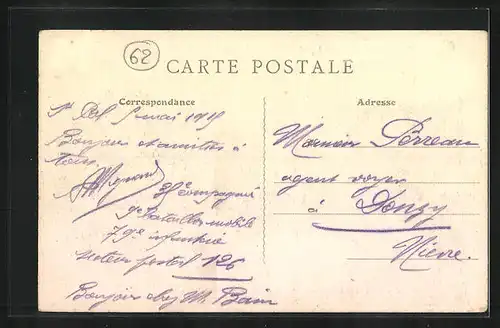 62
CARTE POSTALE
Correspondance
Adresse
St Pol 5 mai 1915
Bonjour et amitiés à
tous
28e compagnie
9e Bataillon mobile
79e infanterie
secteur postal 126
Bonjour chez M. Bain
Monsieur Perreau
agent voyer
à Donzy
Nièvre.